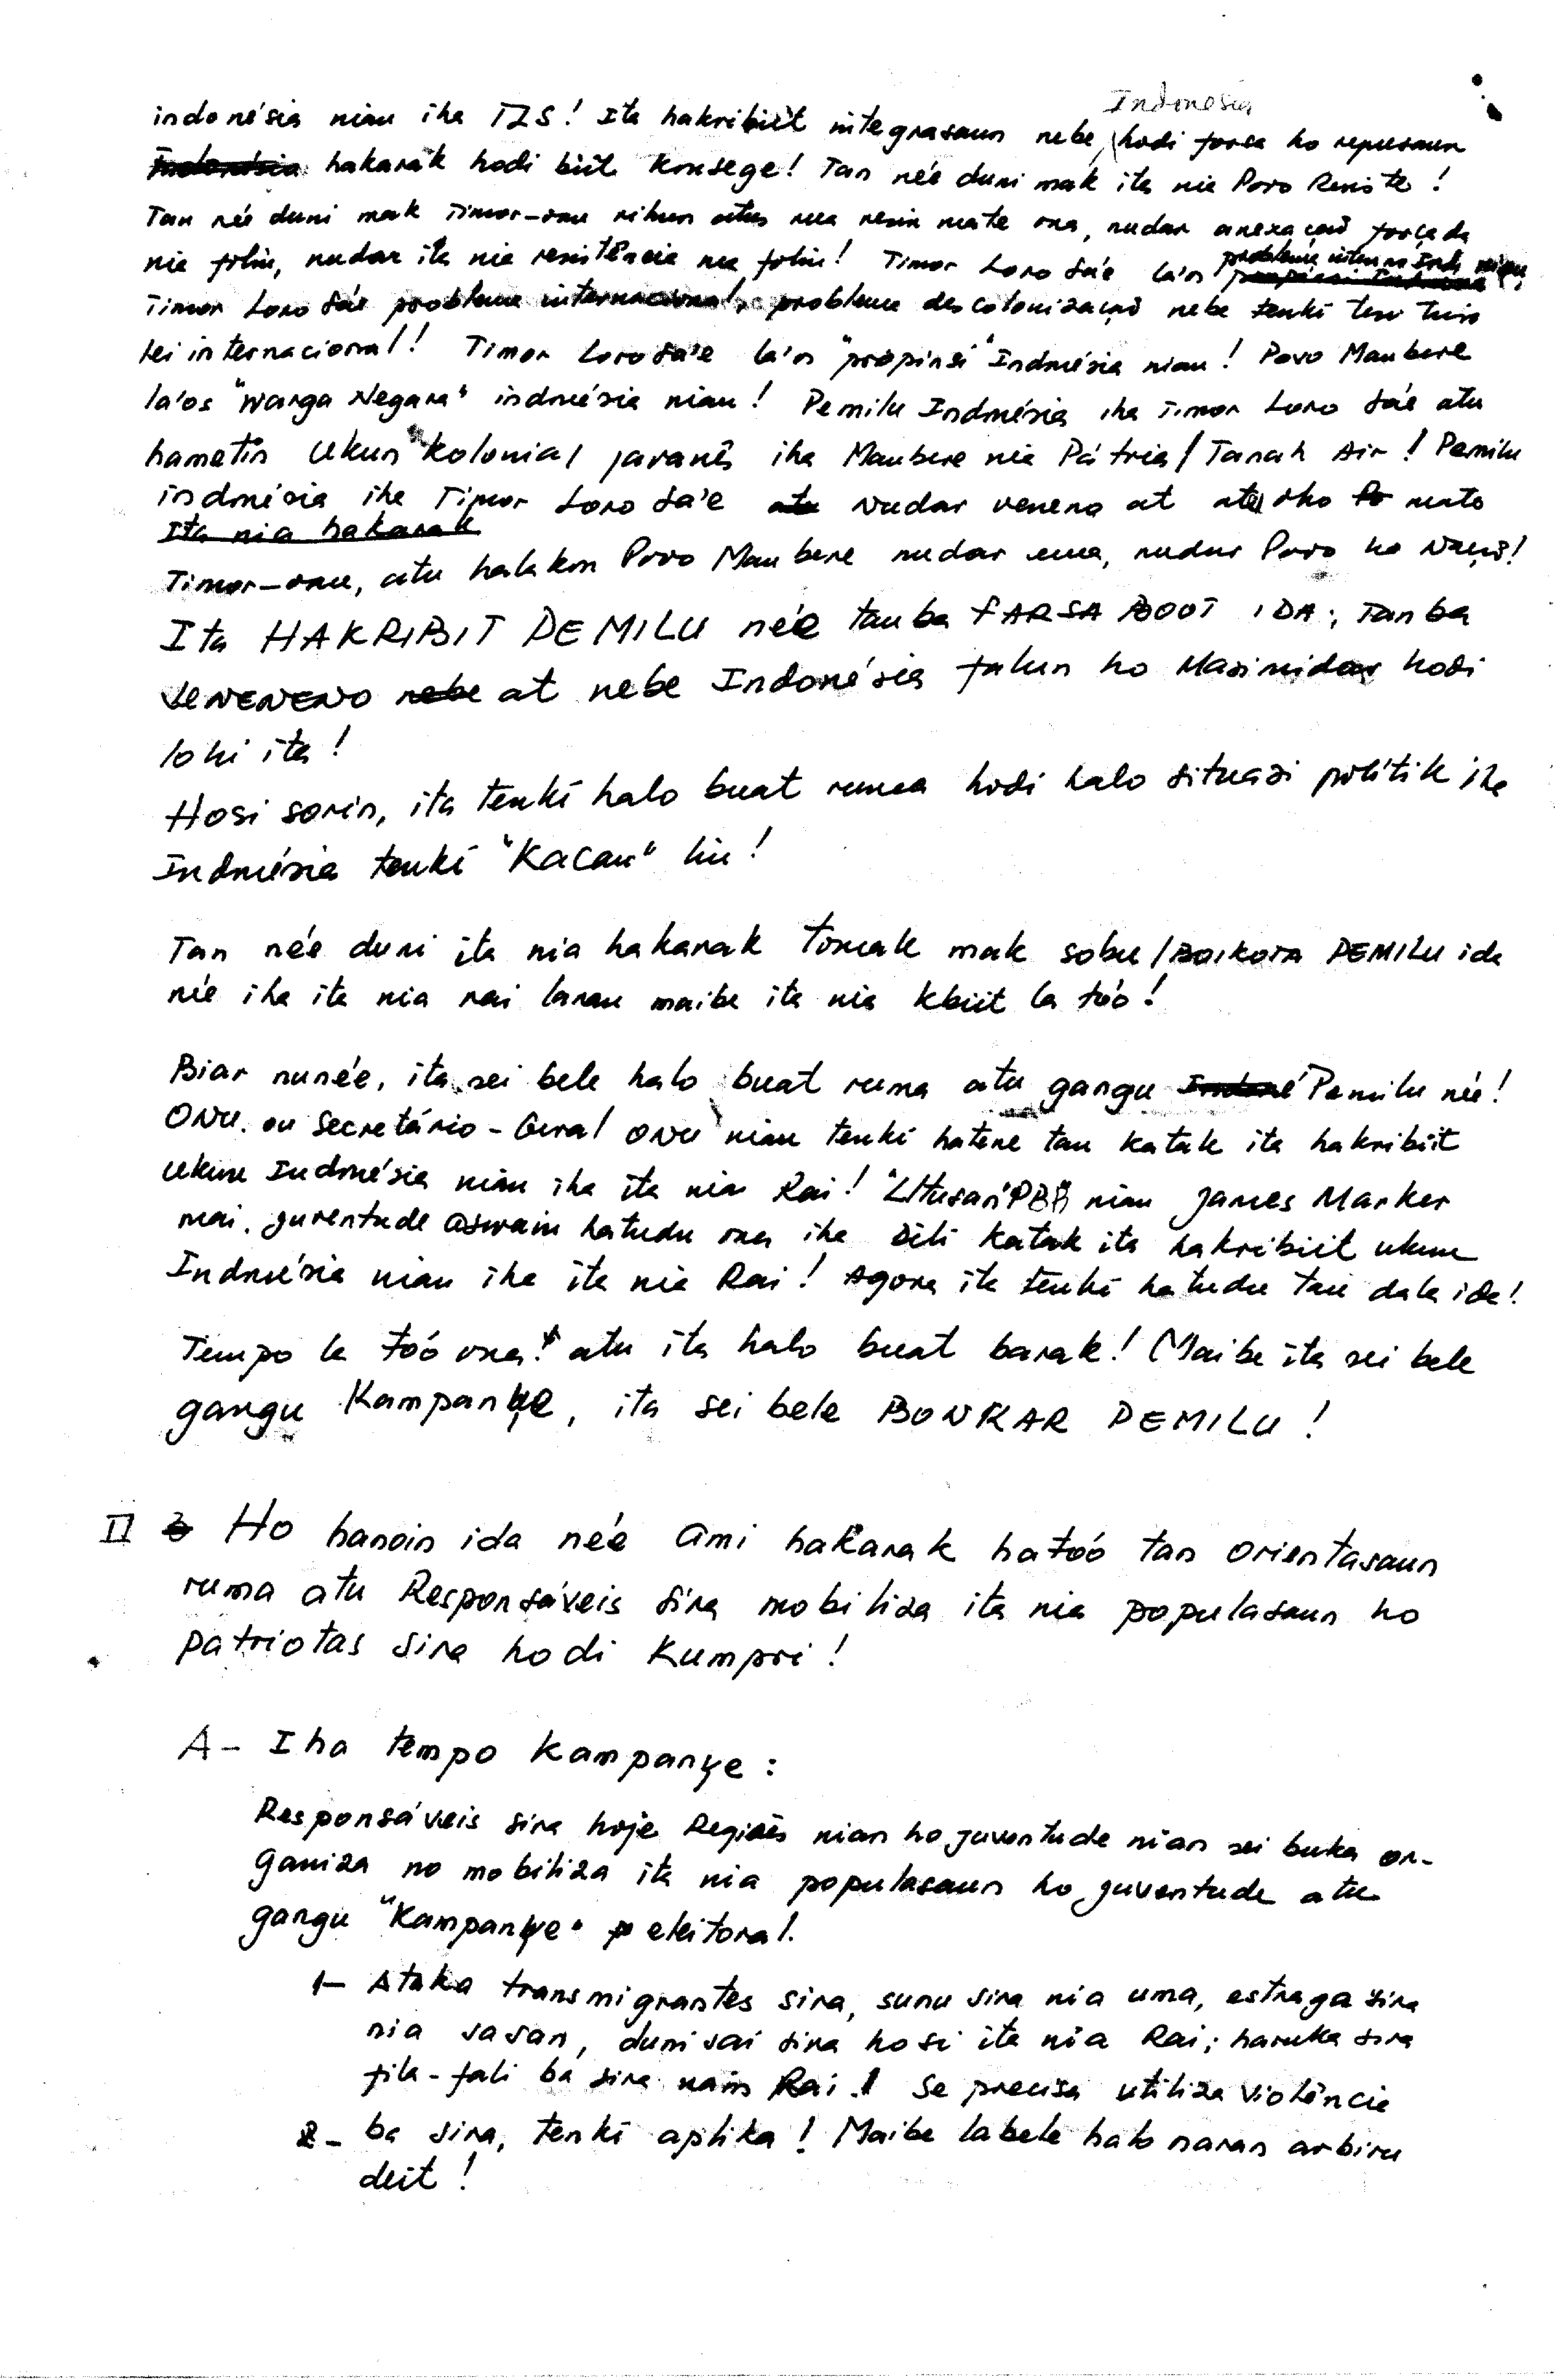 Indonesia
indonésia nian iha TLS! Ita hakribiit integrasaun nebe, hodi forsa ho repressaun
hakarak hodi biit konsege! Tan née duni mak ita nia Povo Resiste!
Tan née duni mak Timor-oan rihun atus rua resin mate ona, nudar anexação forçada
nia folin, nudar ita nia resistência nia folin! Timor Loro Sa'e la'os problema interno Ind. nian,
Timor Loro Sa'e problema internacional, problema descolonização nebe tenki tuir
lei internacional! Timor Loro Sa'e la'os "propinsi" Indonésia nian! Povo Maubere
la'os "Warga Negara" indonésia nian! Pemilu Indonésia iha Timor Loro Sa'e atu
hametin Ukun kolonial javanês iha Maubere nia Pátria / Tanah Air! Pemilu
indonésia iha Timor Loro Sa'e nudar veneno at atu oho mate
Ita nia hakarak
Timor-oan, atu halakon Povo Maubere nudar ema, nudar Povo ho Nação!
Ita HAKRIBIT PEMILU née tanba FARSA BOOT IDA; Tanba
VENENENO at nebe Indonésia fahun ho Masimidar hodi
lohi ita!
Hosi sorin, ita tenki halo buat ruma hodi halo situasi polítik iha
Indonésia tenki "Kacau" liu!
Tan née duni ita nia hakarak tomak mak sobu / BOIKOTA PEMILU ida
née iha ita nia rai laran maibe ita nia kbiit la tóo!
Biar nunée, ita sei bele halo buat ruma atu gangu Pemilu née!
ONU. ou Secretário-Geral ONU nian tenki hatene tan katak ita hakribiit
ukun Indonésia nian iha ita nia Rai! "Utusan" PBB nian James Marker
mai. Juventude Aswain hatudu ona iha Dili katak ita hakribiit ukun
Indonésia nian iha ita nia Rai! Agora ita tenki hatudu tan dala ida!
Tempo la tóo ona! atu ita halo buat barak! Maibe ita sei bele
gangu Kampanye, ita sei bele BONKAR PEMILU!
II Ho hanoin ida née Ami hakarak hatóo tan orientasaun
ruma atu Responsáveis sira mobiliza ita nia populasaun ho
patriotas sira hodi kumpri!
A- Iha tempo Kampanye:
Responsáveis sira hoje Regiões nian ho juventude nian sei buka or-
ganiza no mobiliza ita nia populasaun ho juventude atu
gangu "Kampanye" eleitoral.
1- Ataka transmigrantes sira, sunu sira nia uma, estraga sira
nia sasan, duni sai sira hosi ita nia Rai; haruka sira
fila-fali ba sira nain Rai! Se precisa utiliza violência
2- ba sira, tenki aplika! Maibe labele halo naran arbiru
deit!